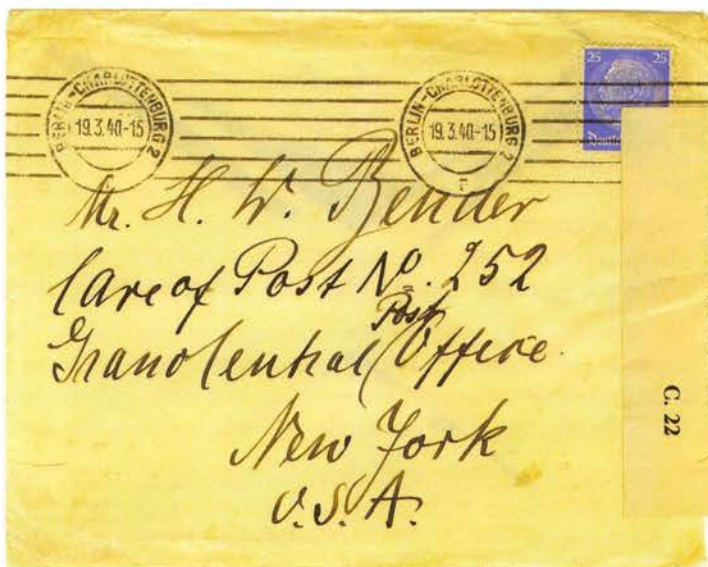 BERLIN-CHARLOTTENBURG 2
19.3.40.-15
BERLIN-CHARLOTTENBURG 2
19.3.40.-15
r
25 25
Mr. H. W. Bender
Care of Post No. 252
Post
Grand Central Office.
New York
U.S.A.
C. 22